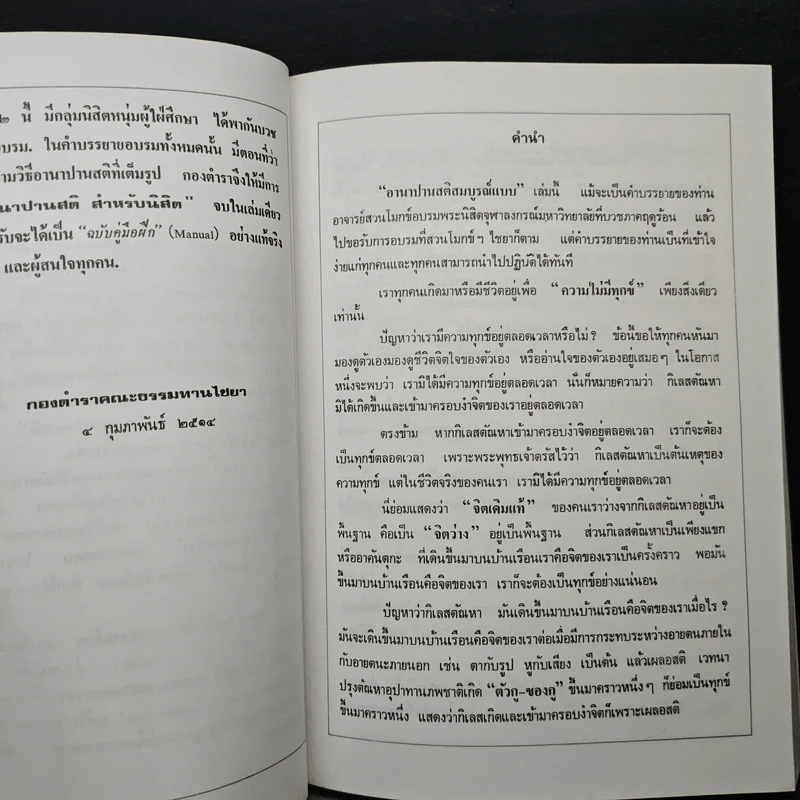 ๒ นี้ มีกลุ่มนิสิตหนุ่มผู้ใฝ่ศึกษา ได้พากันบวช
อบรม. ในคำบรรยายอบรมทั้งหมดนั้น มีตอนที่ว่า
ามวิธีอานาปานสติที่เต็มรูป กองตำราจึงให้มีการ
นาปานสติ สำหรับนิสิต” จบในเล่มเดียว
รับจะได้เป็น “ฉบับคู่มือฝึก” (Manual) อย่างแท้จริง
และผู้สนใจทุกคน.
กองตำราคณะธรรมทานไชยา
๔ กุมภาพันธ์ ๒๕๑๔
คำนำ
“อานาปานสติสมบูรณ์แบบ” เล่มนี้ แม้จะเป็นคำบรรยายของท่าน
อาจารย์สวนโมกข์อบรมพระนิสิตจุฬาลงกรณ์มหาวิทยาลัยที่บวชภาคฤดูร้อน แล้ว
ไปขอรับการอบรมที่สวนโมกข์ฯ ไชยาก็ตาม แต่คำบรรยายของท่านเป็นที่เข้าใจ
ง่ายแก่ทุกคนและทุกคนสามารถนำไปปฏิบัติได้ทันที
เราทุกคนเกิดมาหรือมีชีวิตอยู่เพื่อ “ความไม่มีทุกข์” เพียงสิ่งเดียว
เท่านั้น
ปัญหาว่าเรามีความทุกข์อยู่ตลอดเวลาหรือไม่? ข้อนี้ขอให้ทุกคนหันมา
มองดูตัวเองมองดูชีวิตจิตใจของตัวเอง หรืออ่านใจของตัวเองอยู่เสมอๆ ในโอกาส
หนึ่งจะพบว่า เรามิได้มีความทุกข์อยู่ตลอดเวลา นั่นก็หมายความว่า กิเลสตัณหา
มิได้เกิดขึ้นและเข้ามาครอบงำจิตของเราอยู่ตลอดเวลา
ตรงข้าม หากกิเลสตัณหาเข้ามาครอบงำจิตอยู่ตลอดเวลา เราก็จะต้อง
เป็นทุกข์ตลอดเวลา เพราะพระพุทธเจ้าตรัสไว้ว่า กิเลสตัณหาเป็นต้นเหตุของ
ความทุกข์ แต่ในชีวิตจริงของคนเรา เรามิได้มีความทุกข์อยู่ตลอดเวลา
นี่ย่อมแสดงว่า “จิตเดิมแท้” ของคนเราว่างจากกิเลสตัณหาอยู่เป็น
พื้นฐาน คือเป็น “จิตว่าง” อยู่เป็นพื้นฐาน ส่วนกิเลสตัณหาเป็นเพียงแขก
หรืออาคันตุกะ ที่เดินขึ้นมาบนบ้านเรือนเราคือจิตของเราเป็นครั้งคราว พอมัน
ขึ้นมาบนบ้านเรือนคือจิตของเรา เราก็จะต้องเป็นทุกข์อย่างแน่นอน
ปัญหาว่ากิเลสตัณหา มันเดินขึ้นมาบนบ้านเรือนคือจิตของเราเมื่อไร?
มันจะเดินขึ้นมาบนบ้านเรือนคือจิตของเราต่อเมื่อมีการกระทบระหว่างอายตนภายใน
กับอายตนะภายนอก เช่น ตากับรูป หูกับเสียง เป็นต้น แล้วเผลอสติ เวทนา
ปรุงตัณหาอุปาทานภพชาติเกิด “ตัวกู-ของกู” ขึ้นมาคราวหนึ่งๆ ก็ย่อมเป็นทุกข์
ขึ้นมาคราวหนึ่ง แสดงว่ากิเลสเกิดและเข้ามาครอบงำจิตก็เพราะเผลอสติ